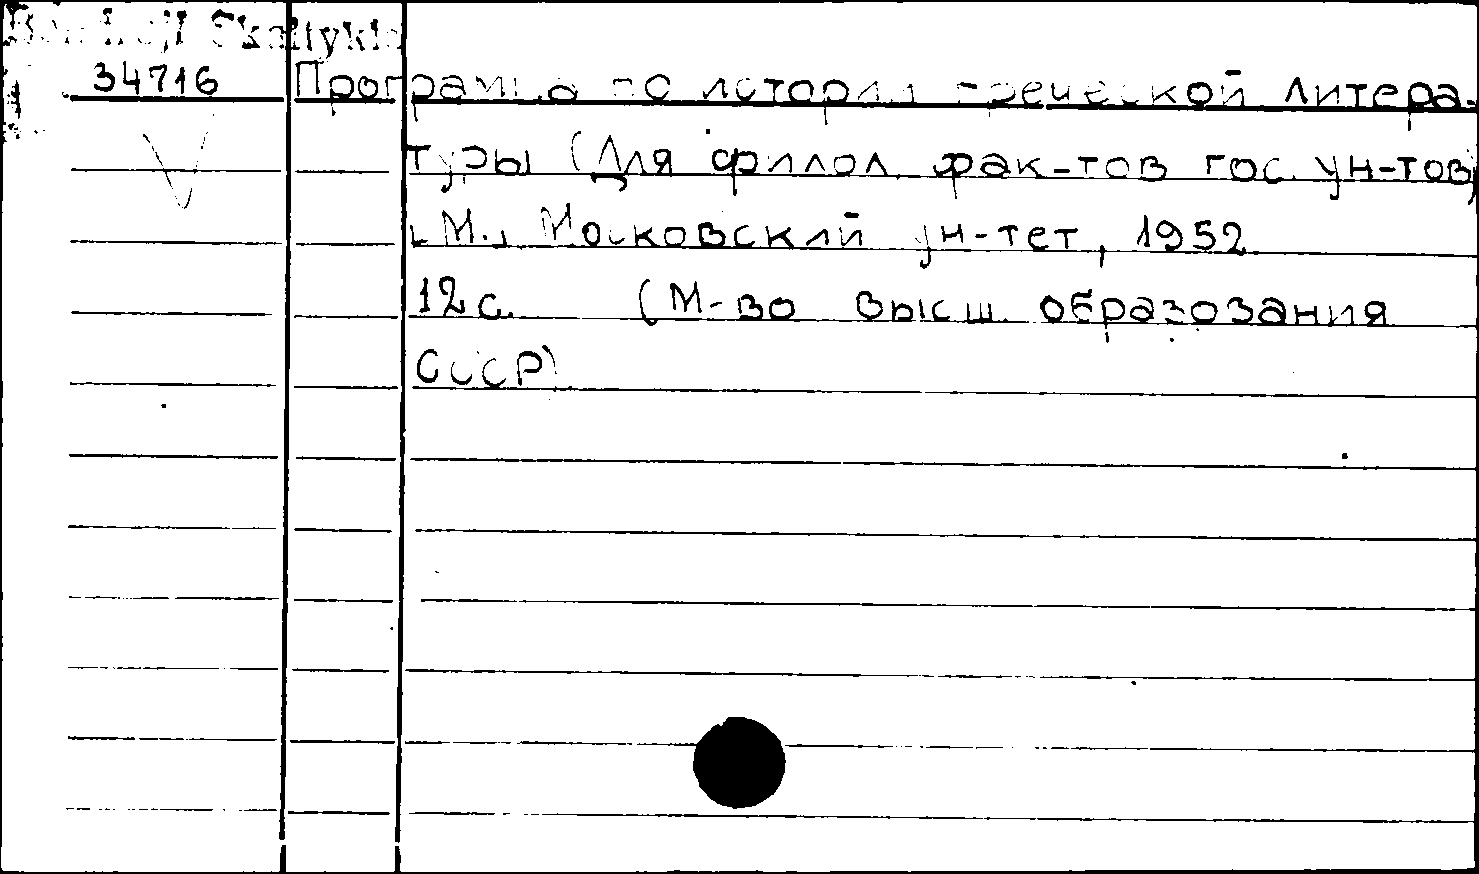 Bendroji Skaitykla
34716
Программа по истории греческой литера-
туры (Для филол. фак-тов гос. ун-тов)
[М.] Московский ун-тет, 1952
12 с. (М-во высш. образования
СССР)